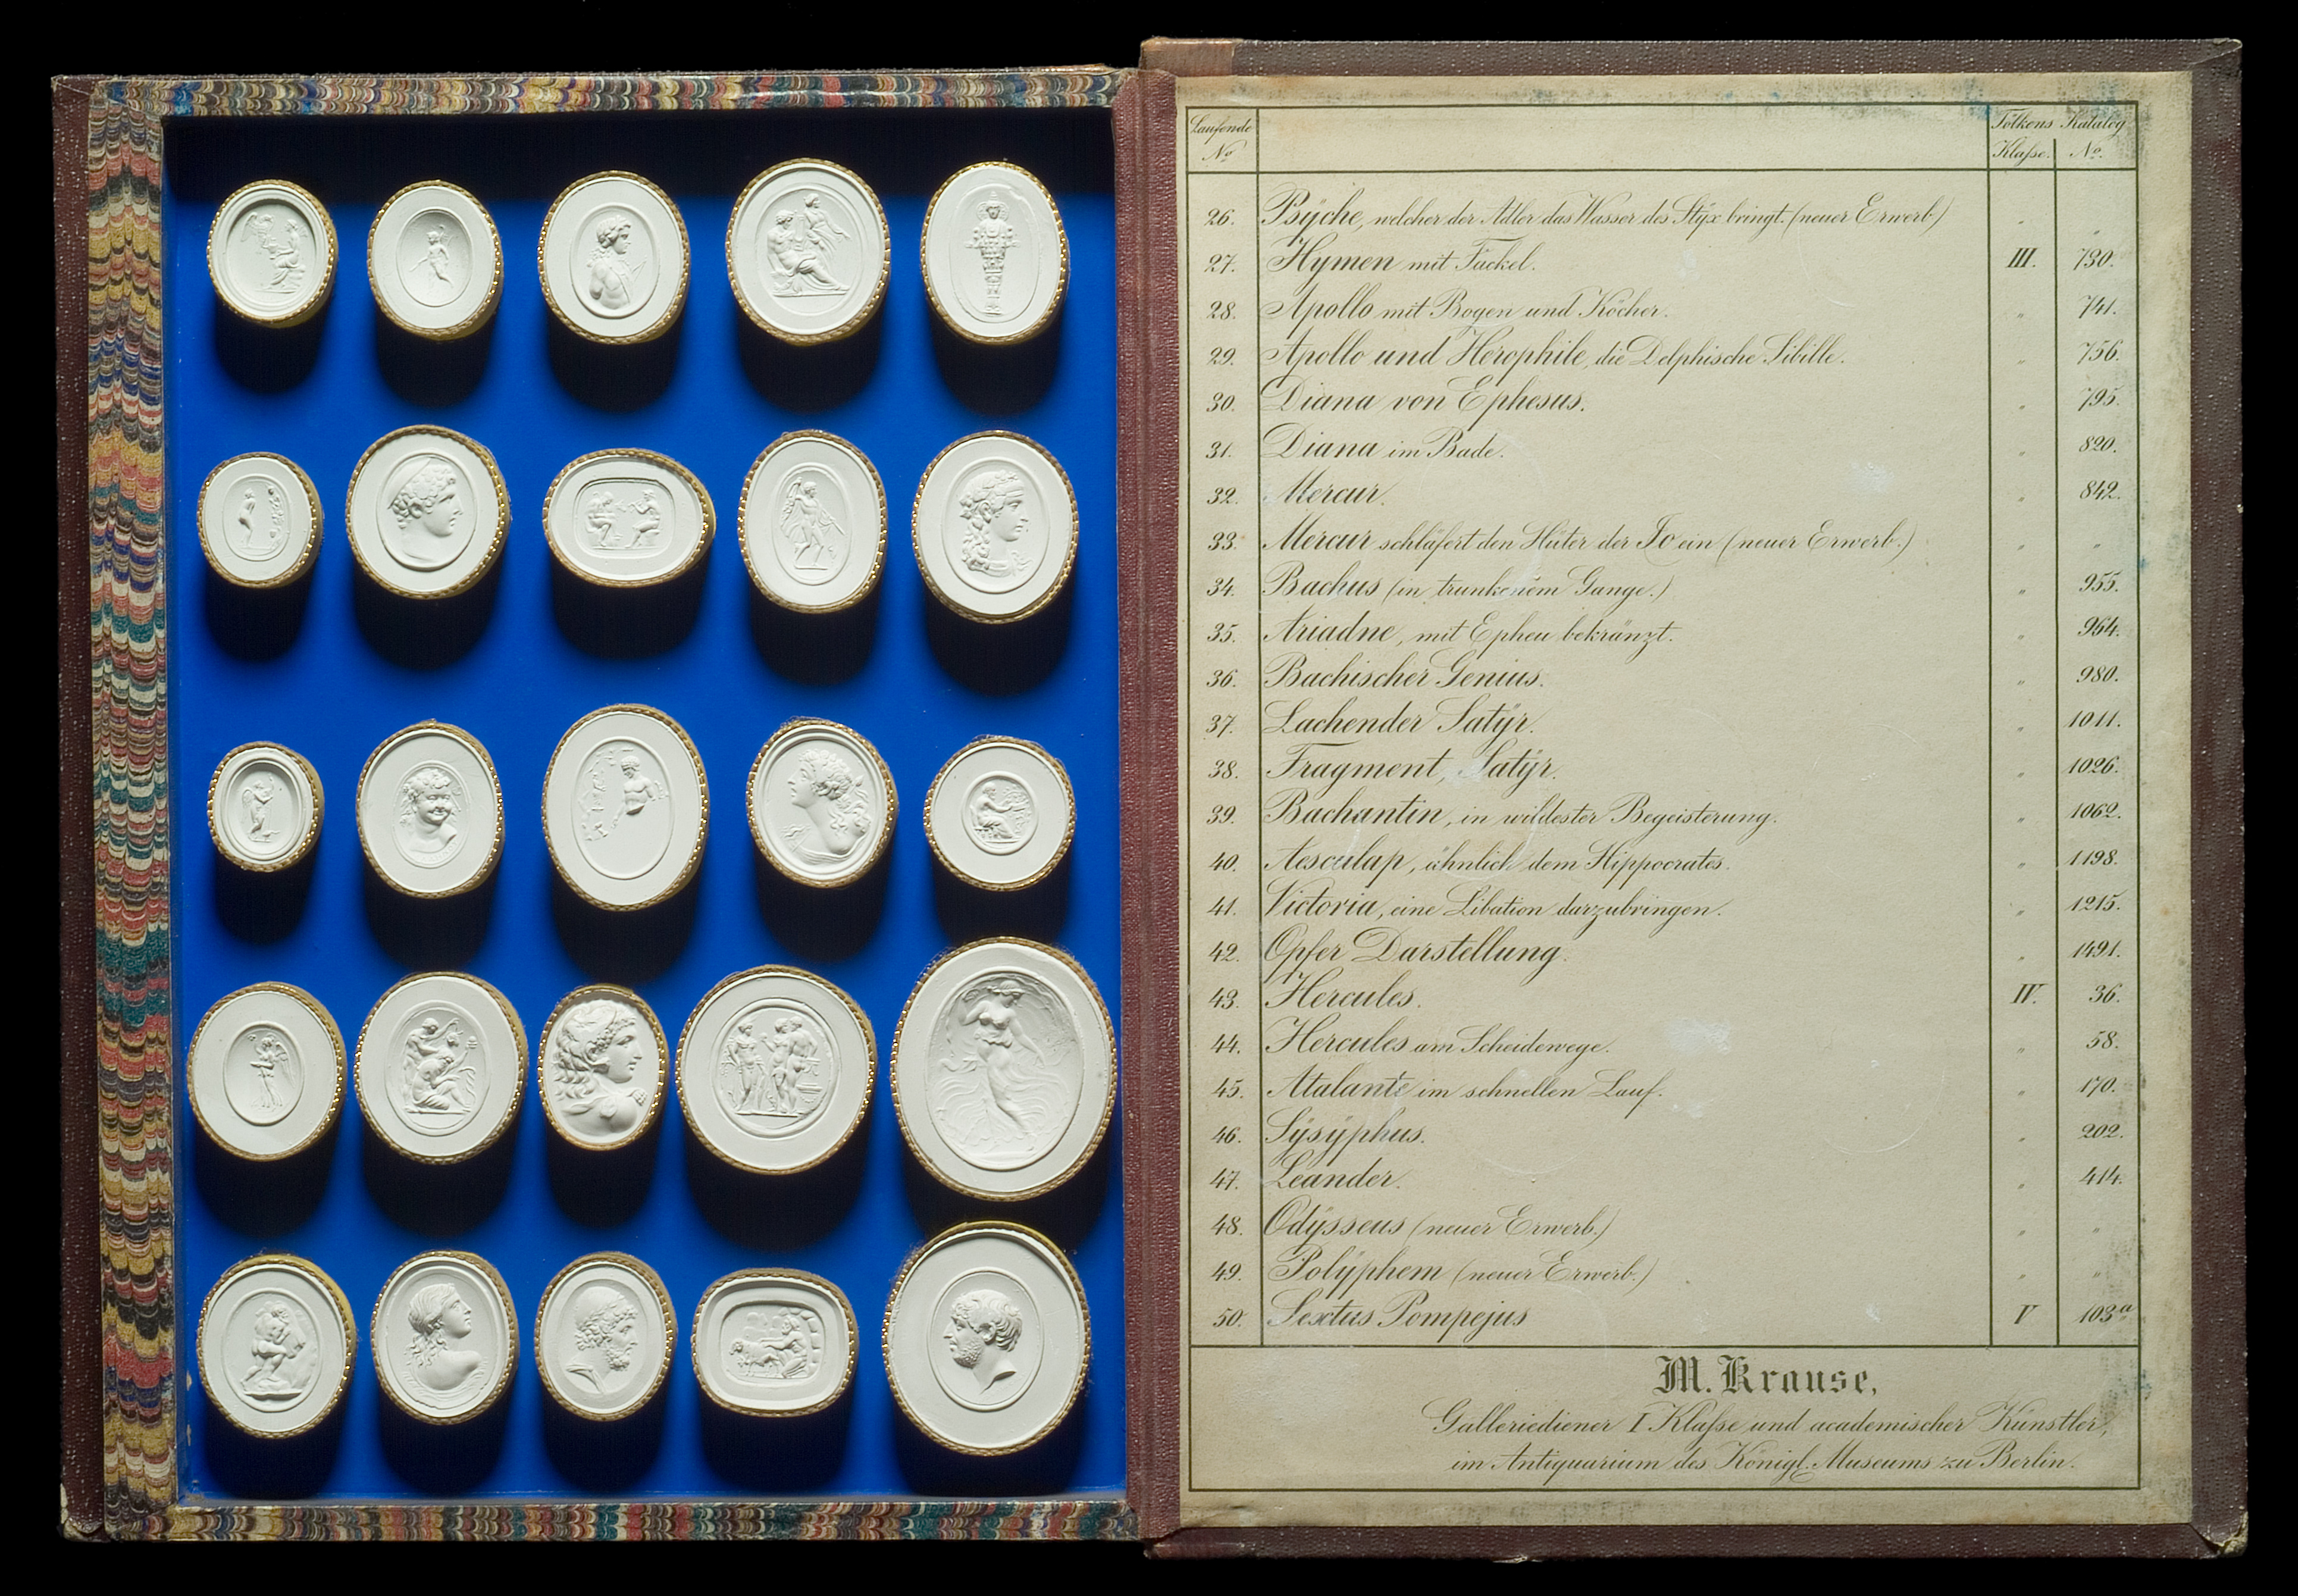 Laufende Tölkens Katalog
No Klaſse. No.
26. Psÿche, welcher der Adler das Wasser des Stÿx bringt. (neuer Erwerb) " "
27. Hymen mit Fackel. III. 730.
28. Apollo mit Bogen und Köcher. " 741.
29. Apollo und Herophile, die Delphische Sibille. " 756.
30. Diana von Ephesus. " 795.
31. Diana im Bade. " 820.
32. Mercur. " 842.
33. Mercur schläfert den Hüter der Jo ein (neuer Erwerb.) " "
34. Bachus (in trunkenem Gange.) " 955.
35. Ariadne, mit Epheu bekränzt. " 964.
36. Bachischer Genius. " 980.
37. Lachender Satÿr. " 1011.
38. Fragment, Satÿr. " 1026.
39. Bachantin, in wildester Begeisterung. " 1062.
40. Aesculap, ähnlich dem Hippocrates. " 1198.
41. Victoria, eine Libation darzubringen. " 1215.
42. Opfer Darstellung. " 1491.
43. Hercules. IV. 36.
44. Hercules am Scheidewege. " 58.
45. Atalante im schnellen Lauf. " 170.
46. Sÿsÿphus. " 202.
47. Leander. " 414.
48. Odÿsseus (neuer Erwerb.) " "
49. Polÿphem (neuer Erwerb.) " "
50. Sextus Pompejus V 103a
M. Krause,
Galleriediener I Klaſse und academischer Künstler,
im Antiquarium des Königl. Museums zu Berlin.